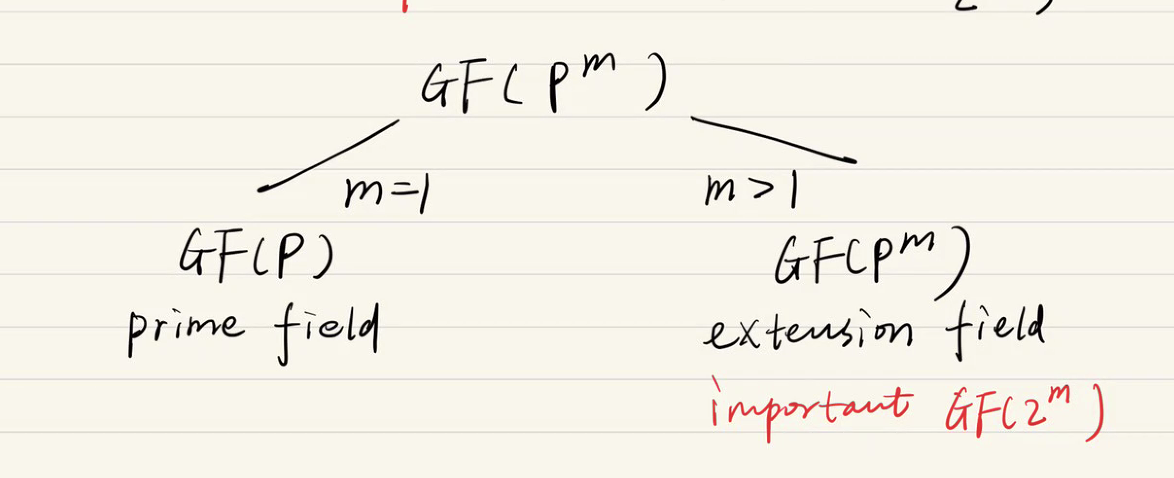 GF(p^m)
m=1
m>1
GF(p)
GF(p^m)
prime field
extension field
important GF(2^m)